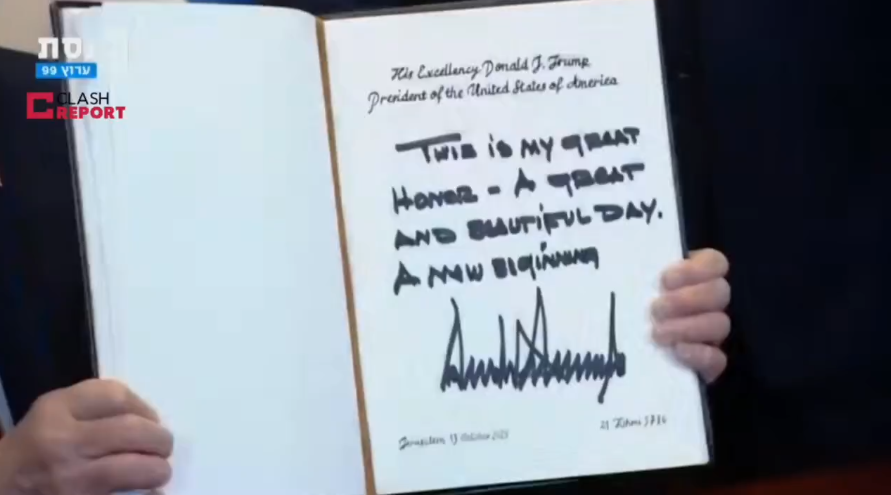 כנסת
ערוץ 99
CLASH
REPORT
His Excellency Donald J. Trump
President of the United States of America
THIS IS MY GREAT
HONOR - A GREAT
AND BEAUTIFUL DAY.
A NEW BIGINNING
Jerusalem, 13 October 2025
21 Tishrei 5786